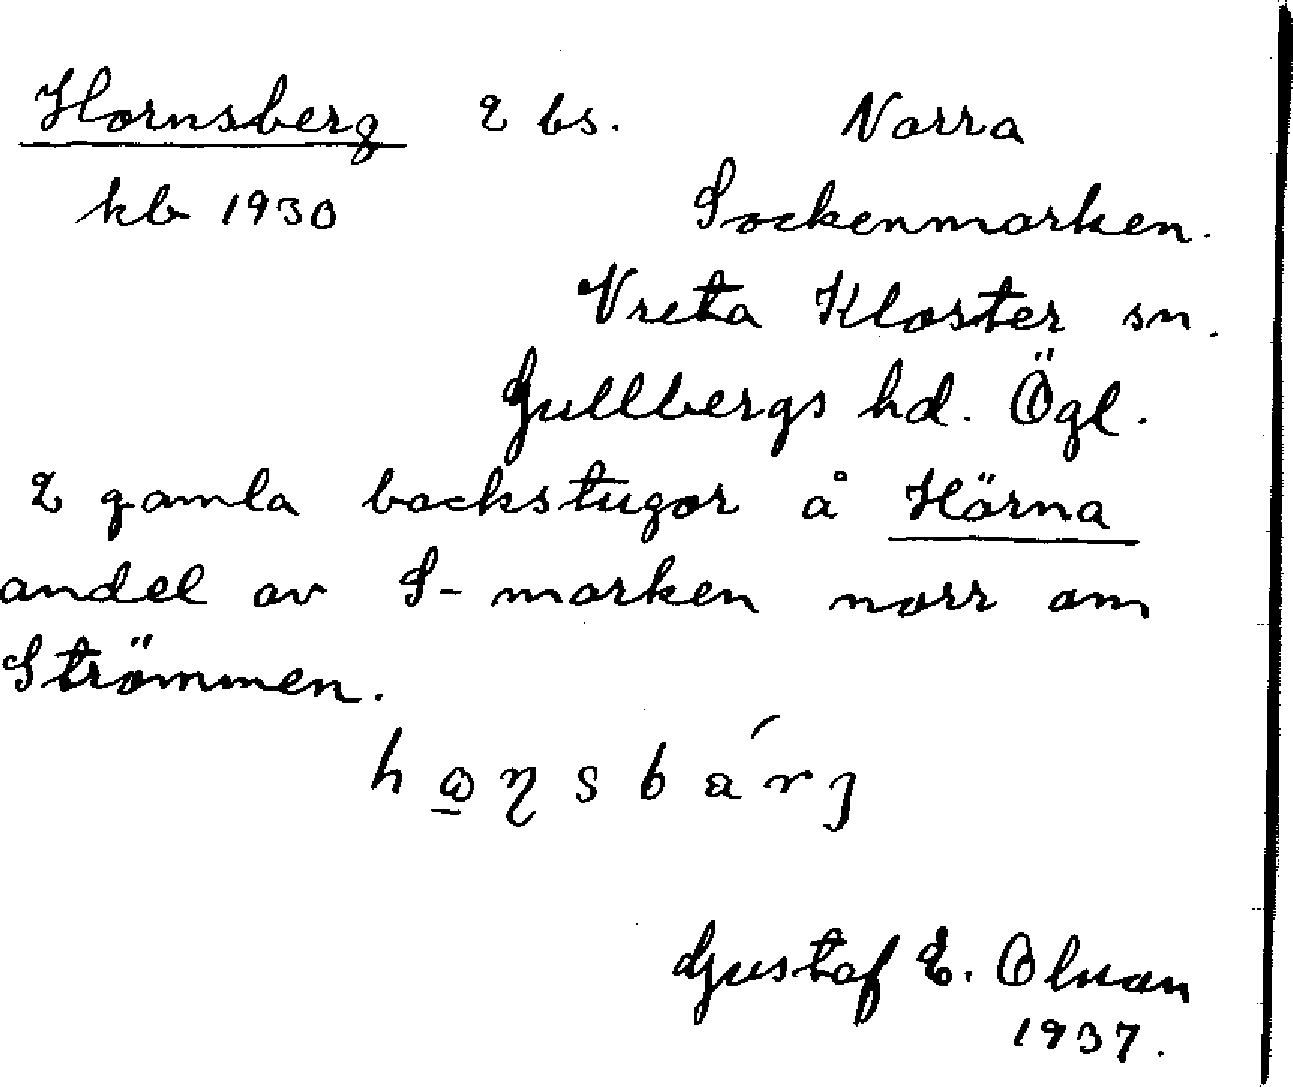 Hornsberg 2 bs. Norra
kb 1930 Sockenmarken.
Vreta Kloster sn.
Gullbergs hd. Ögl.
2 gamla backstugor å Härna
andel av S-marken norr om
Strömmen.
Gustaf E. Olsson
1937.